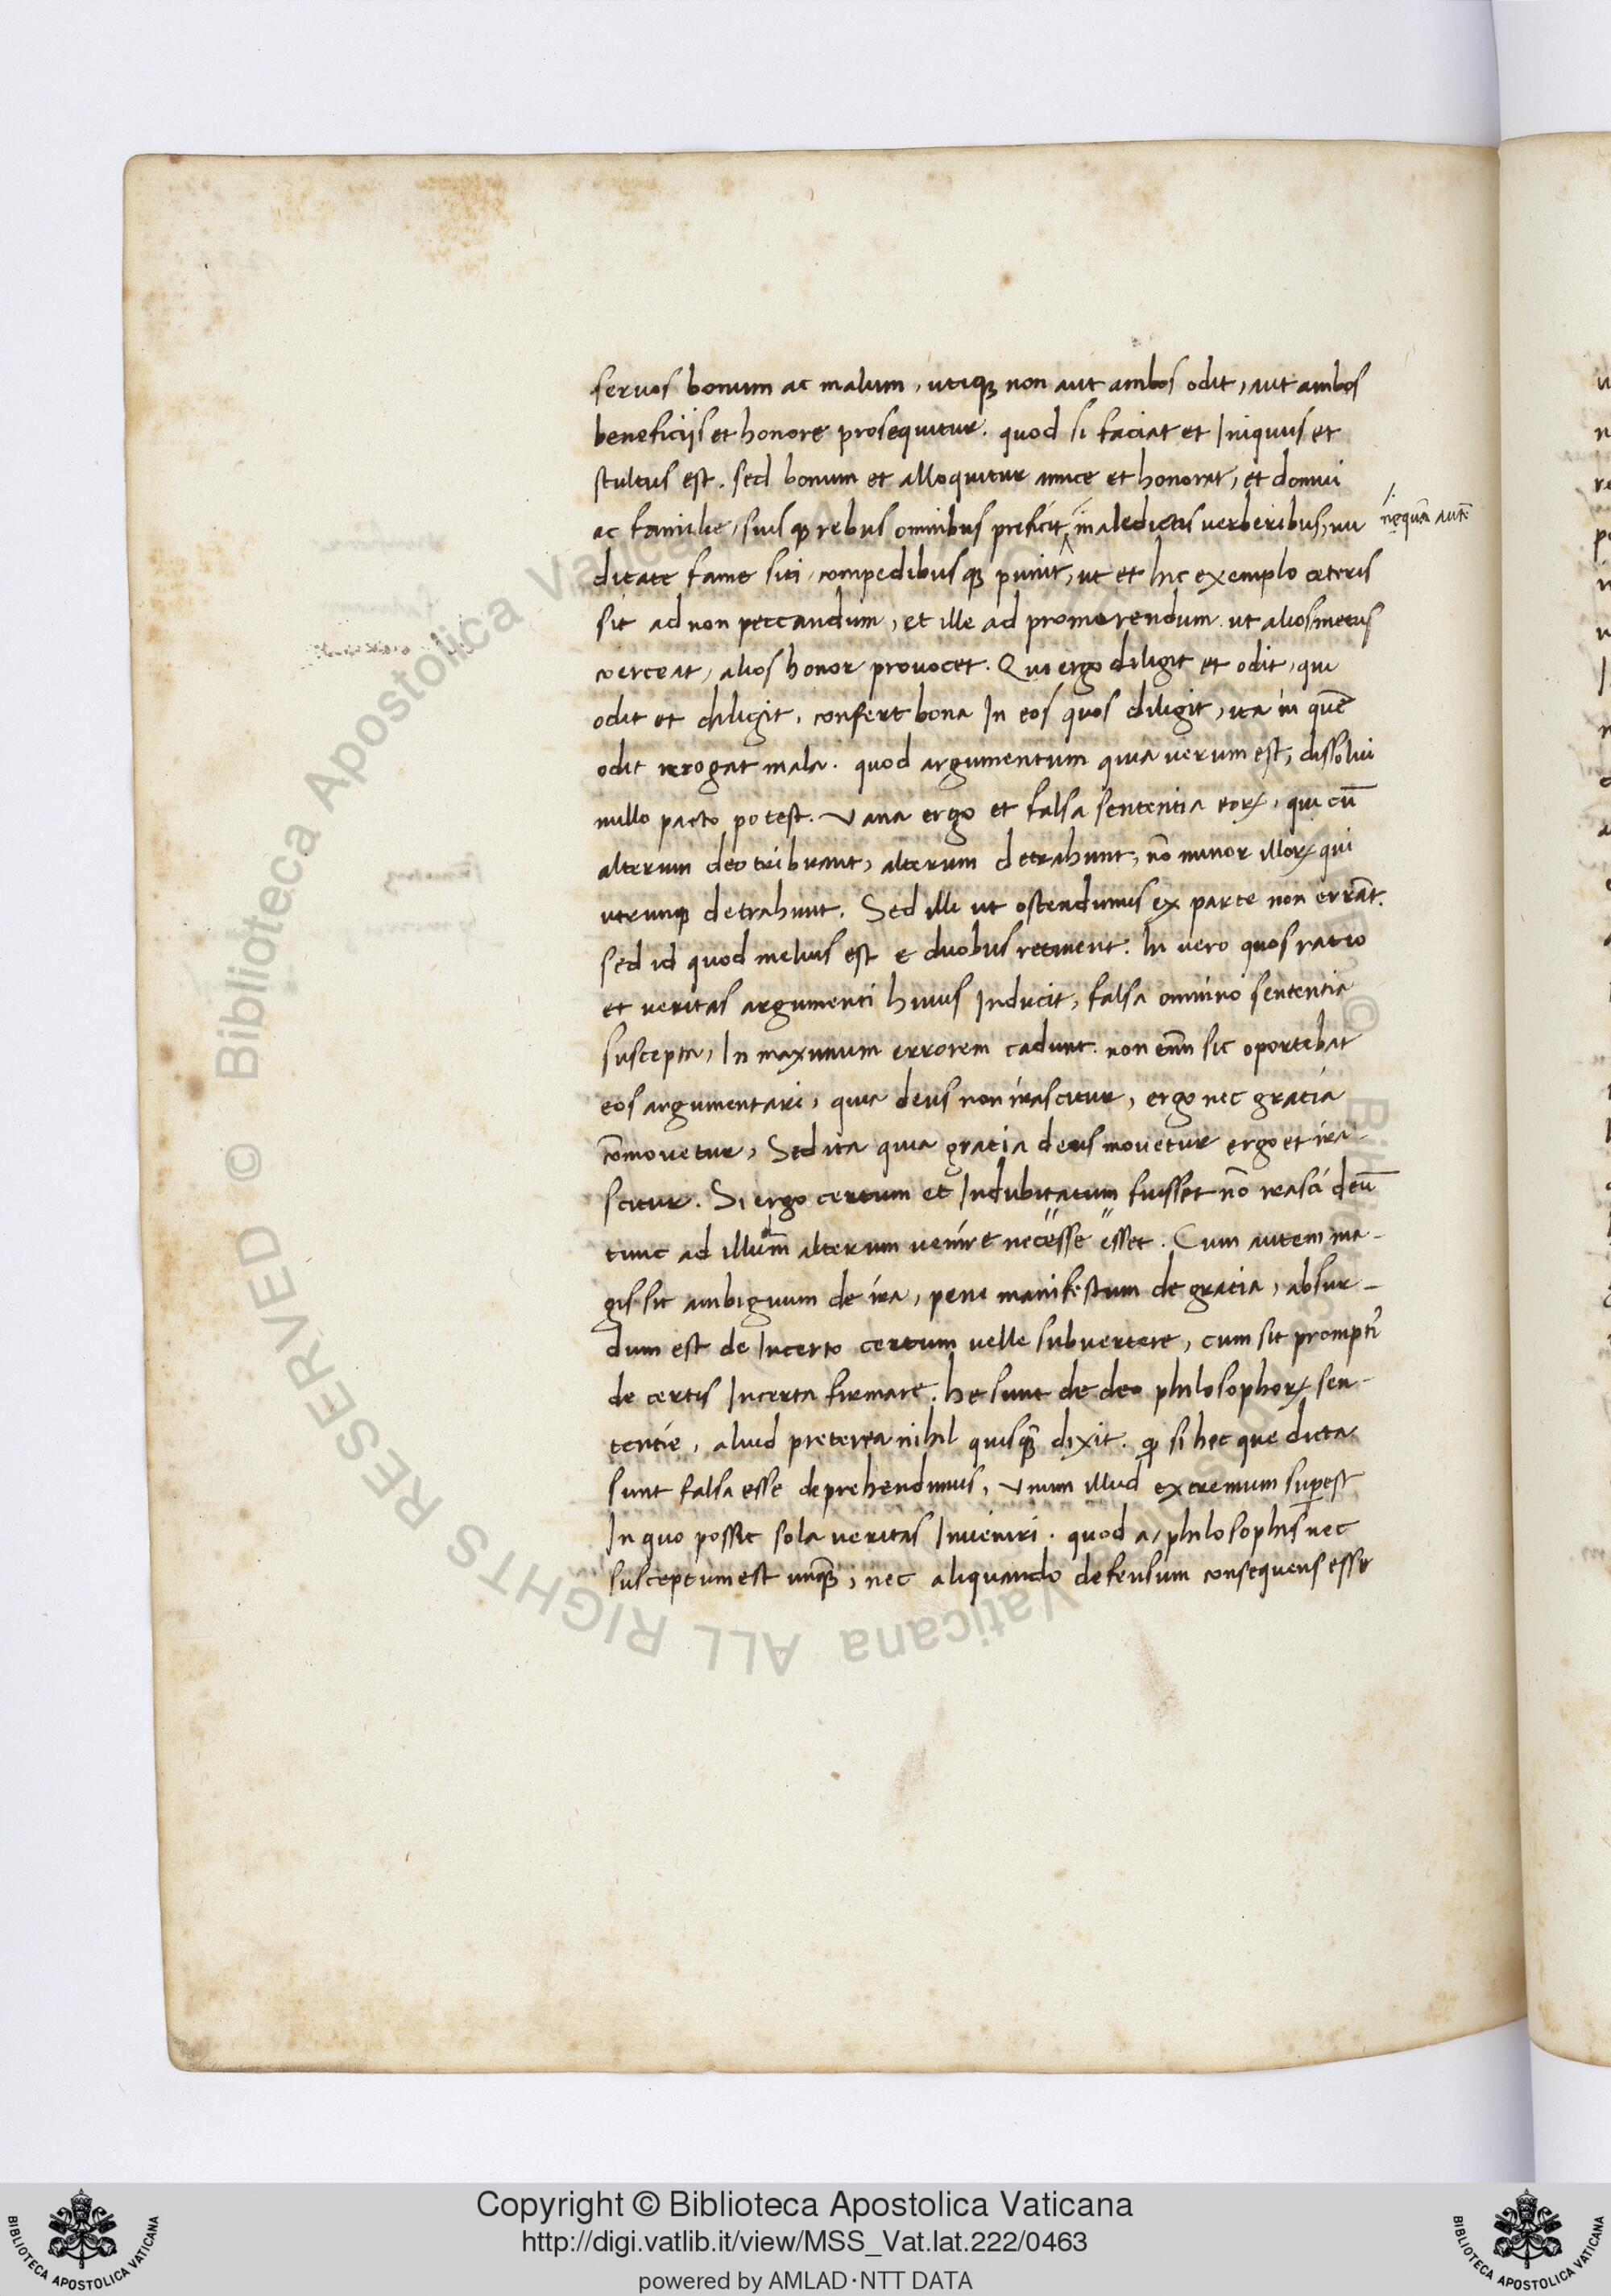 seruos bonum ac malum, utiqꝫ non aut ambos odit, aut ambos
beneficiis et honore prosequitur. quod si faciat et Iniquus et
stultus est. sed bonum et alloquitur amice et honorat, et domui
ac familie, suisqꝫ rebus omnibus preficit, maledictis uerberibus, nu
nequā autē
ditate fame siti, compedibusqꝫ punit, ut et hic exemplo ceteris
sit ad non peccandum, et ille ad promerendum. ut alios metus
coerceat, alios honor prouocet. Qui ergo diligit et odit, qui
odit et diligit, confert bona In eos quos diligit, ita in quē
odit irrogat mala. quod argumentum quia uerum est, dissolui
nullo pacto potest. Vana ergo et falsa sententia eoꝝ, qui cū
alterum deo tribuant, alterum detrahunt, nō minor illoꝝ qui
utrunqꝫ detrahunt. Sed illi ut ostendimus ex parte non errāt.
sed id quod melius est e duobus retinent. hi uero quos ratio
et ueritas argumenti huius Inducit, falsa omnino sententia
suscepta, In maximum errorem cadunt. non enī sic oportebat
eos argumentari, quia deus non irascitur, ergo nec gratia
cōmouetur, Sed ita quia gratia deus mouetur ergo et ira-
scitur. Si ergo certum et Indubitatum fuisset nō irasci deū
tunc ad illum alterum uenire necesse esset. Cum autem ma-
gis sit ambiguum de ira, pene manifestum de gratia, absur-
dum est de Incerto certum uelle subuertere, cum sit promptī
de certis Incerta firmare. he sunt de deo philosophoꝝ sen-
tentie, aliud preterea nihil quisqꝫ dixit. qd si hec que dicta
sunt falsa esse deprehendimus, Vnum illud extremum supest
In quo possit sola ueritas Inueniri. quod a, philosophis nec
susceptum est unqꝫ, nec aliquando defensum consequens esse
Copyright © Biblioteca Apostolica Vaticana
http://digi.vatlib.it/view/MSS_Vat.lat.222/0463
powered by AMLAD·NTT DATA
BIBLIOTECA APOSTOLICA VATICANA
BIBLIOTECA APOSTOLICA VATICANA